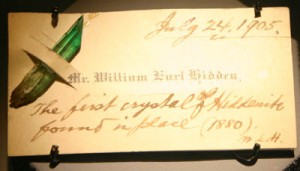 July 24, 1905.
Mr. William Earl Hidden,
The first crystal of Hiddenite
found in place (1880).
W.E.H.